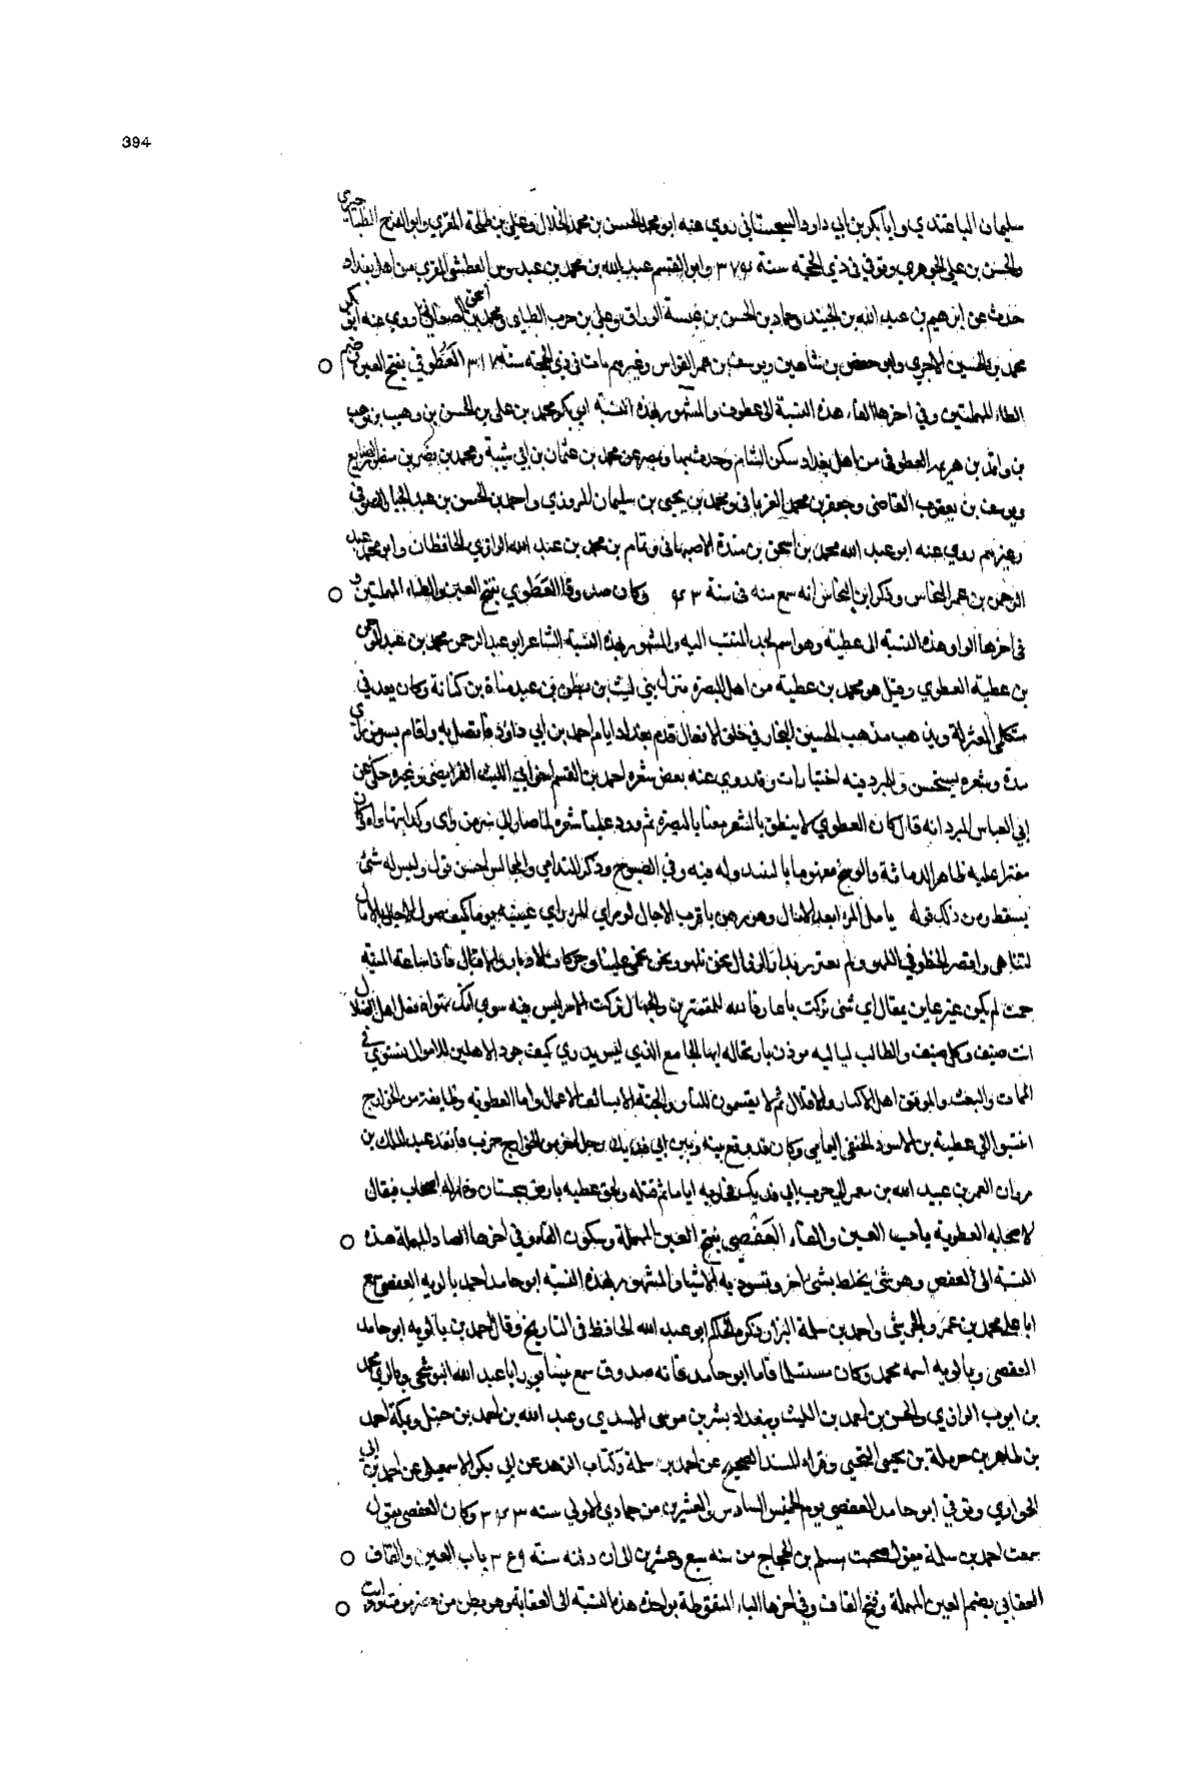 394
سليمان الباغندي وابا بكر بن ابي داود السجستاني روي عنه ابو محمد الحسن بن محمد الخلال وعلي بن طلحة المقري وابو الفرج الطناجيري
والحسن بن علي الجوهري وتوفي في ذي الحجة سنة وابو القسم عبد الله بن محمد بن عبدوس العطشي المقري من اهل بغداد
حدث عن ابرهيم بن عبد الله بن الجنيد وحماد بن الحسن بن عنبسة الوراق وعلي بن حرب الطاي ومحمد بن اسحق الصغاني روي عنه ابو بكر
محمد بن الحسين الاجري وابو حفص بن شاهين ويوسف بن عمر القواس وغيرهم مات في ذي الحجة سنة العطوفي بفتح العين وضم
الطاء المهملتين وفي اخرها الفاء هذه النسبة الى عطوف والمشهور بهذه النسبة ابي بكر محمد بن علي بن الحسن بن وهيب بن
بن واقد بن هرثمة العطوفي من اهل بغداد سكن الشام وحدث بها وبمصر عن محمد بن عثمان بن ابي شيبة ومحمد بن نصر بن الصايغ
ويوسف بن يعقوب القاضي وجعفر بن محمد الفريابي ومحمد بن يحيى بن سليمان المروذي واحمد بن الحسن بن عبد الجبار الصوفي
وغيرهم روي عنه ابو عبد الله محمد بن اسحق بن مندة الاصبهاني وتمام بن محمد بن عبد الله الرازي الحافظان وابو محمد عبد
الرحمن بن عمر النحاس وذكر ابن النحاس انه سمع منه في سنة وكان صدوقا العطوي بفتح العين والطاء المهملتين و
في اخرها الواو هذه النسبة الى عطية وهو اسم لجد المنتسب اليه والمشهور بهذه النسبة الشاعر ابو عبد الرحمن محمد بن عبد الرحمن
بن عطية العطوي وقيل هو محمد بن عطية من اهل البصرة مولى بني ليث بن بكر بن عبد مناة بن كنانة وكان يعد في
متكلمي المعتزلة ويذهب مذهب الحسين النجار في خلق الافعال قدم بغداد ايام احمد بن ابي دواد فاتصل به واقام بسر من راي
مدة وشعره يستحسن وللمبرد فيه اختيارات وقد روي عنه بعض شعره احمد بن القسم اخو ابي الليث الفرايضي وغيره حكي عن
ابي العباس المبرد انه قال كان العطوي لا ينطق بالشعر معنا بالبصرة ثم ورد علينا شعره لما صار الى سر من راى وكنا نتهاداه وكان
مقترا عليه ظاهر الدمامة والوسخ منهوما بالنبيذ وله فيه وفي الصبوح وذكر الندامي والمجالس احسن قول وليس له شيء
يسقط ومن ذلك قوله يامل المرء ابعد الامال وهو رهن باقرب الاجال لو راي المرء راي عينيه يوما كيف صول الاجال بالامال
لتناهى واقصر الخطو في اللهو ولم يغترر بدار الزوال نحن نلهو ونحن يحصى علينا حركات الادبار والاقبال فاذا ساعة المنية
حمت لم يكن غير عاين بمقال اي شي تركت يا عارفا بالله للممترين والجهال تركت الامر ليس فيه سوي انك تهواه فعل اهل الضلال
انت ضيف وكل ضيف وان طالت لياليه موذن بارتحال ايها الجامع الذي ليس يدري كيف حوز الاهلين للاموال يستوي في
الممات والبعث والموقف اهل الاكثار والاقلال ثم لا يقسمون للنار والجنة الا بسالف الاعمال واما العطوية وطايفة من الخوارج
انتسبوا الى عطية بن الاسود الحنفي اليمامي وكان قد وقع بينه وبين ابي فديك رجل اخر من الخوارج حرب فانفذ عبد الملك بن
مروان العمر بن عبيد الله بن معمر الى حرب ابي فديك فحاربه اياما ثم قتله ولحق عطية بارض سجستان وصار له اصحاب فيقال
لاصحابه العطوية باب العين والفاء العفصي بفتح العين المهملة وسكون الفاء وفي اخرها الصاد المهملة هذه
النسبة الى العفص وهو شي يخلط بشي اخر وتسود به الاشيا والمشهور بهذه النسبة ابو حامد احمد بالويه العفصي سمع
ابا علي محمد بن عمرو الجرشي واحمد بن سلمة البزار ذكره الحاكم ابو عبد الله الحافظ في التاريخ وقال احمد بن بالويه ابو حامد
العفصي وبالويه اسمه محمد وكان مستمليا فاما ابو حامد فانه صدوق سمع بنيسابور ابا عبد الله البوشنجي وبالري محمد
بن ايوب الرازي والحسن بن احمد بن الليث وببغداد بشر بن موسى الاسدي وعبد الله بن احمد بن حنبل وبمكة احمد
بن طاهر بن حرملة بن يحيى التجيبي وقراه المسند الصحيح عن احمد بن سلمة وكتاب الزهد عن ابي بكر الاسمعيلي عن احمد بن ابي
الحواري وتوفي ابو حامد العفصي يوم الخميس السادس والعشرين من جمادي الاولي سنة وكان العفصي يقول
سمعت احمد بن سلمة يقول صحبت مسلم بن الحجاج من سنة سبع وعشرين الى ان دفنه سنة باب العين والقاف
العقابي بضم العين المهملة وفتح القاف وفي اخرها الباء المنقوطة بواحدة هذه النسبة الى العقابة وهو بطن من حضرموت